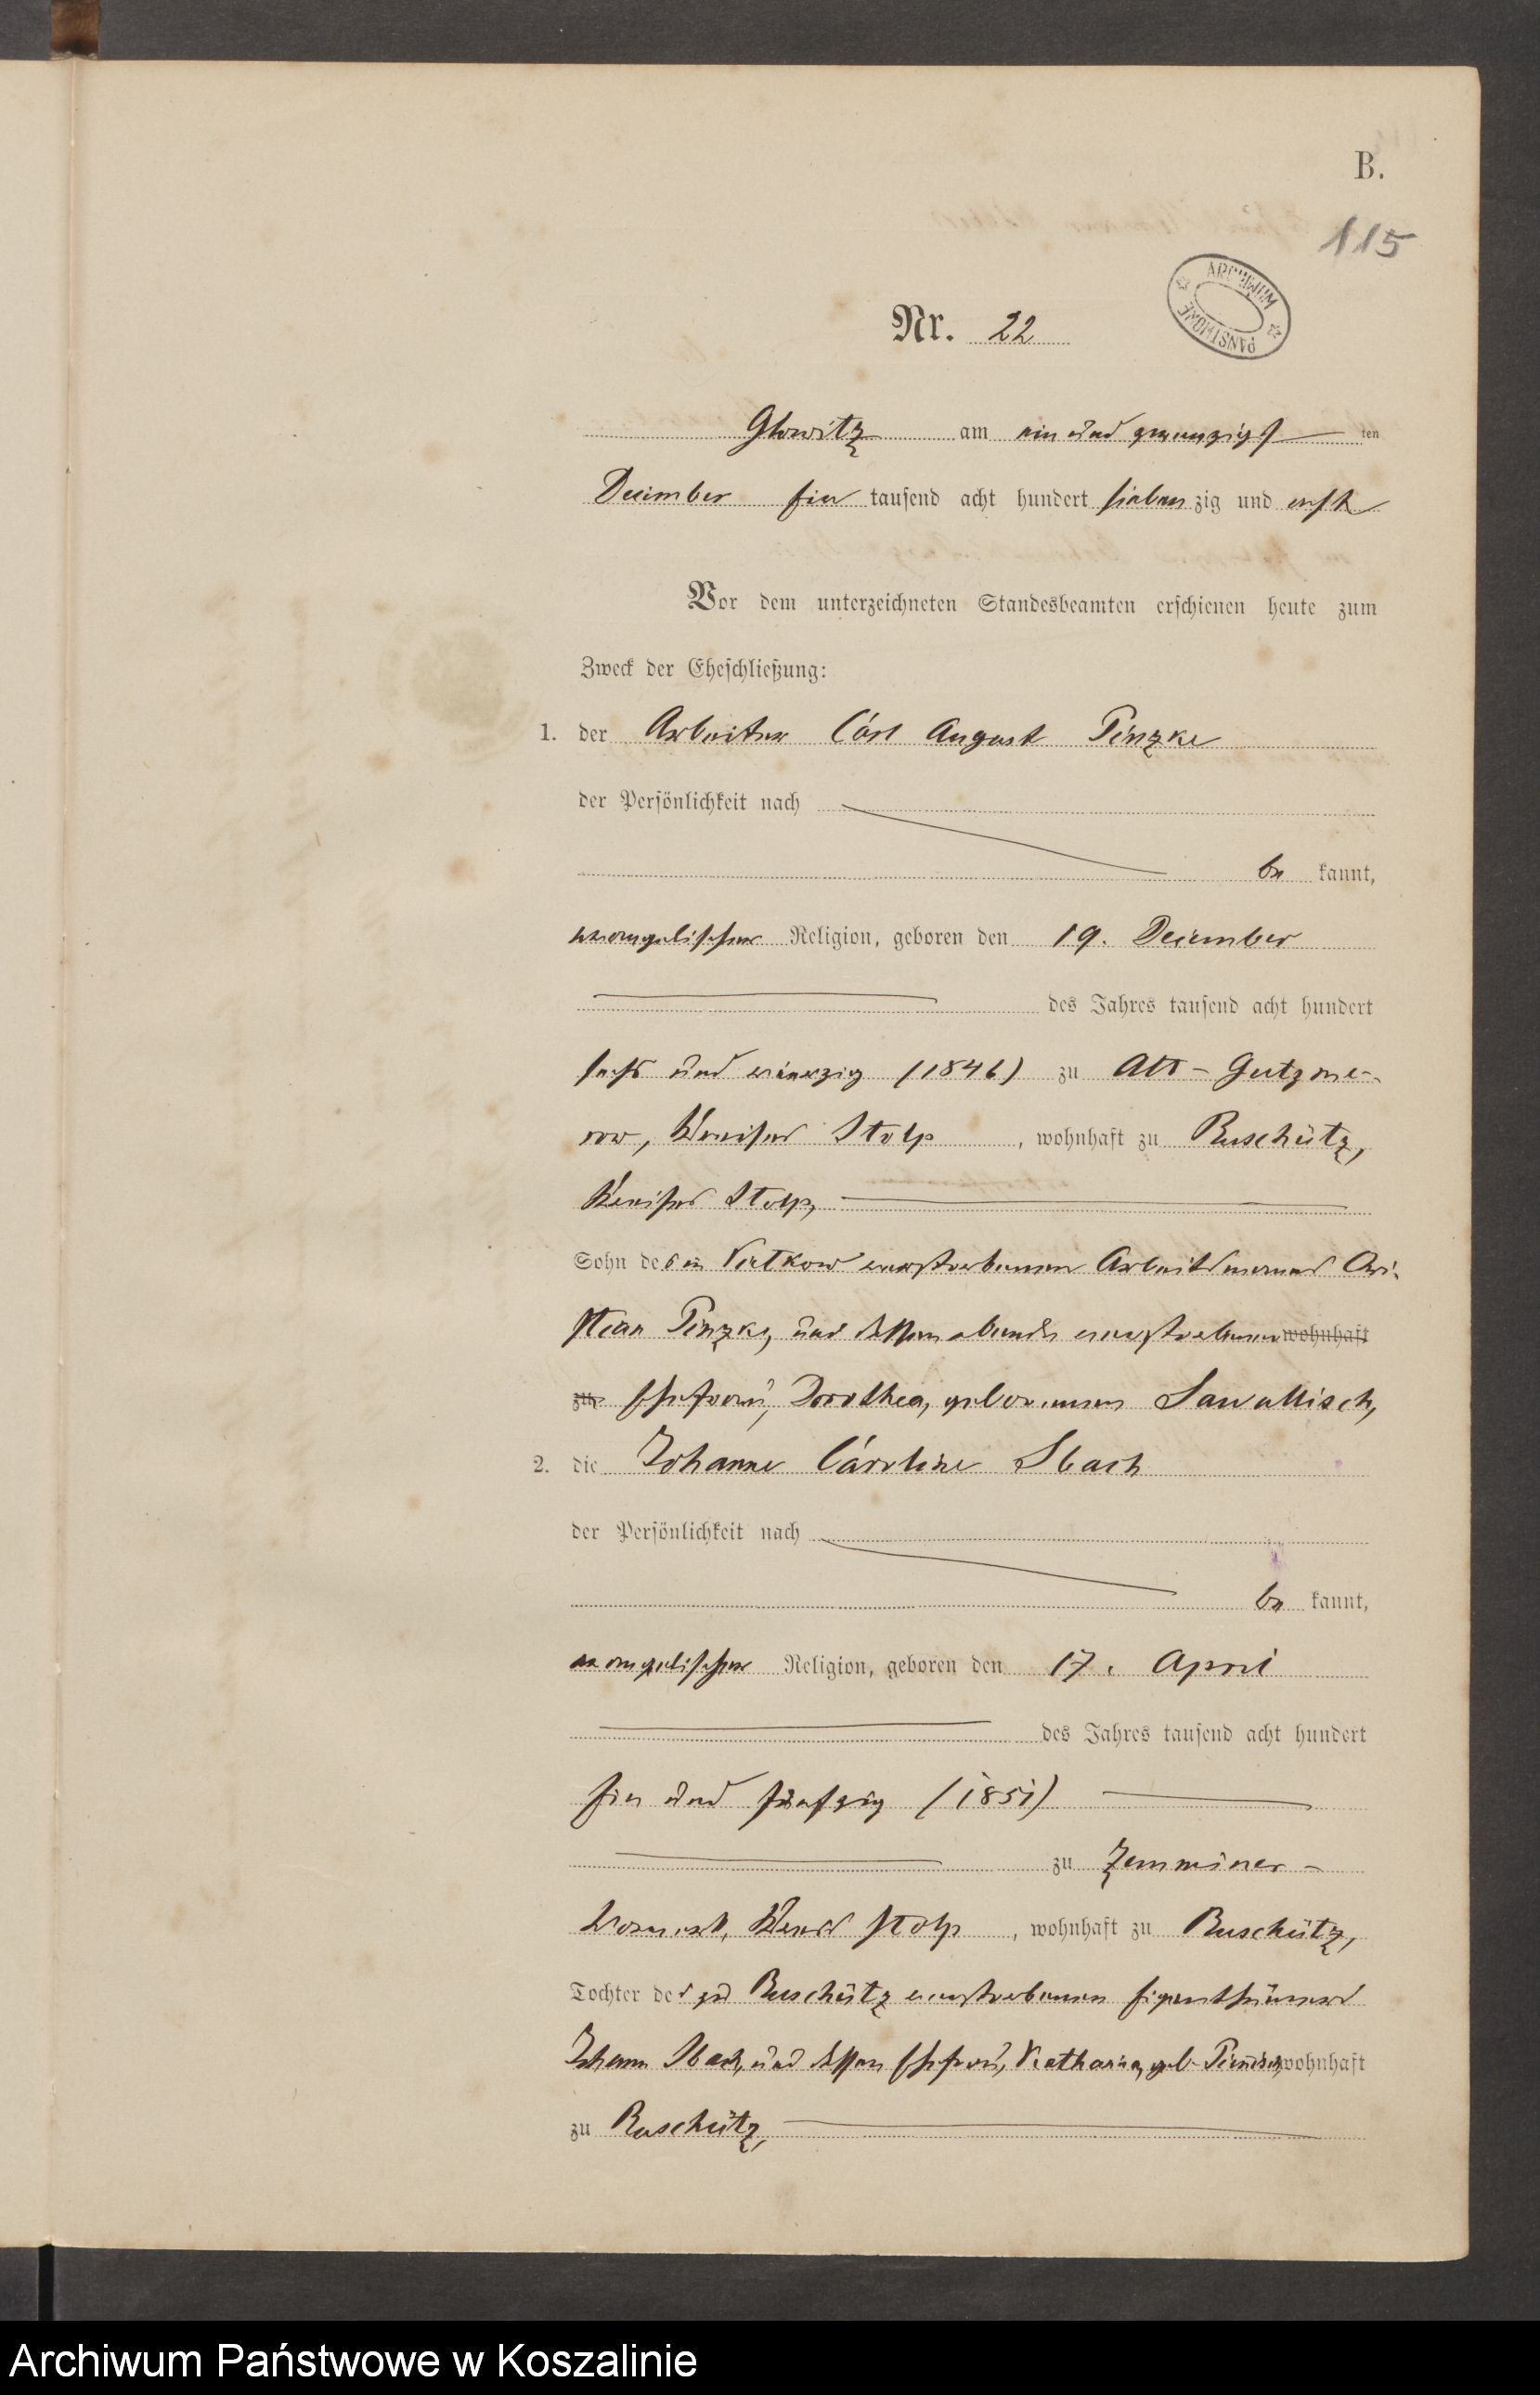 B.
115
ARCHIWUM PAŃSTWOWE
Nr. 22
Glowitz am ein und zwanzigsten
December ein tausend acht hundert siebenzig und acht
Vor dem unterzeichneten Standesbeamten erschienen heute zum
Zweck der Eheschließung:
1. der Arbeiter Carl August Pinzke
der Persönlichkeit nach
be kannt,
evangelischer Religion, geboren den 19. December
des Jahres tausend acht hundert
sechs und vierzig (1846) zu Alt-Gutzme-
row, Kreises Stolp, wohnhaft zu Ruschütz,
Kreises Stolp,
Sohn des in Vietkow verstorbenen Arbeitsmannes Chri-
stian Pinzke, und dessen ebenda verstorbenen wohnhaft
zu Ehefrau, Dorothea, geborenen Sawallisch,
2. die Johanne Caroline Sbach
der Persönlichkeit nach
be kannt,
evangelischer Religion, geboren den 17. April
des Jahres tausend acht hundert
ein und fünfzig (1851)
zu Zemminer-
Vorwerk, Kreis Stolp, wohnhaft zu Ruschütz,
Tochter des zu Ruschütz verstorbenen Eigenthümers
Johann Sbach, und dessen Ehefrau, Katharina, geb. wohnhaft
zu Ruschütz,
Archiwum Państwowe w Koszalinie